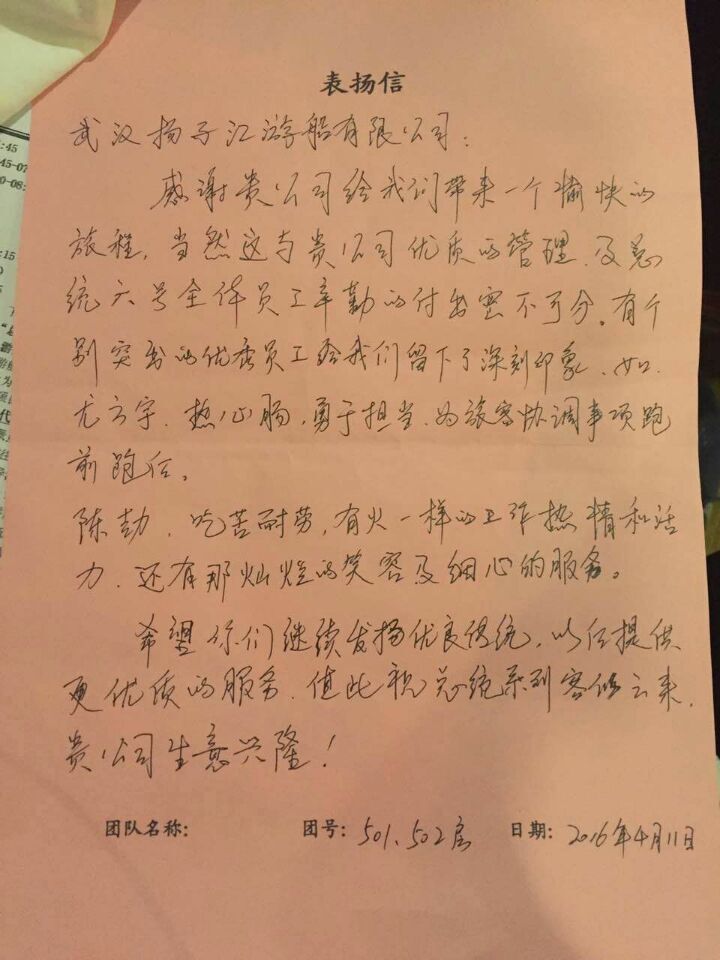 表扬信
武汉扬子江游船有限公司:
感谢贵公司给我们带来一个愉快的
旅程,当然这与贵公司优质的管理及总
统六号全体员工辛勤的付出密不可分。有个
别突出的优秀员工给我们留下了深刻印象,如
尤方宇,热心肠,勇于担当,为旅客协调事项跑
前跑后。
陈劼,吃苦耐劳,有火一样的工作热情和活
力,还有那灿烂的笑容及细心的服务。
希望你们继续发扬优良传统,以后提供
更优质的服务,值此祝总统系列客似云来,
贵公司生意兴隆!
团队名称: 团号:501、502房 日期:2016年4月11日
:45
45-07
0-08:
:15